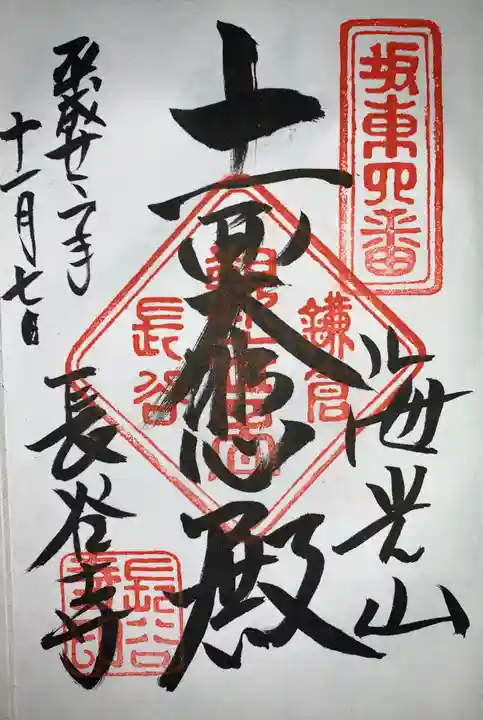 坂東四番
海光山
十一面大悲殿
鎌倉
長谷
平成廿年
十一月七日
長谷寺
長谷寺印